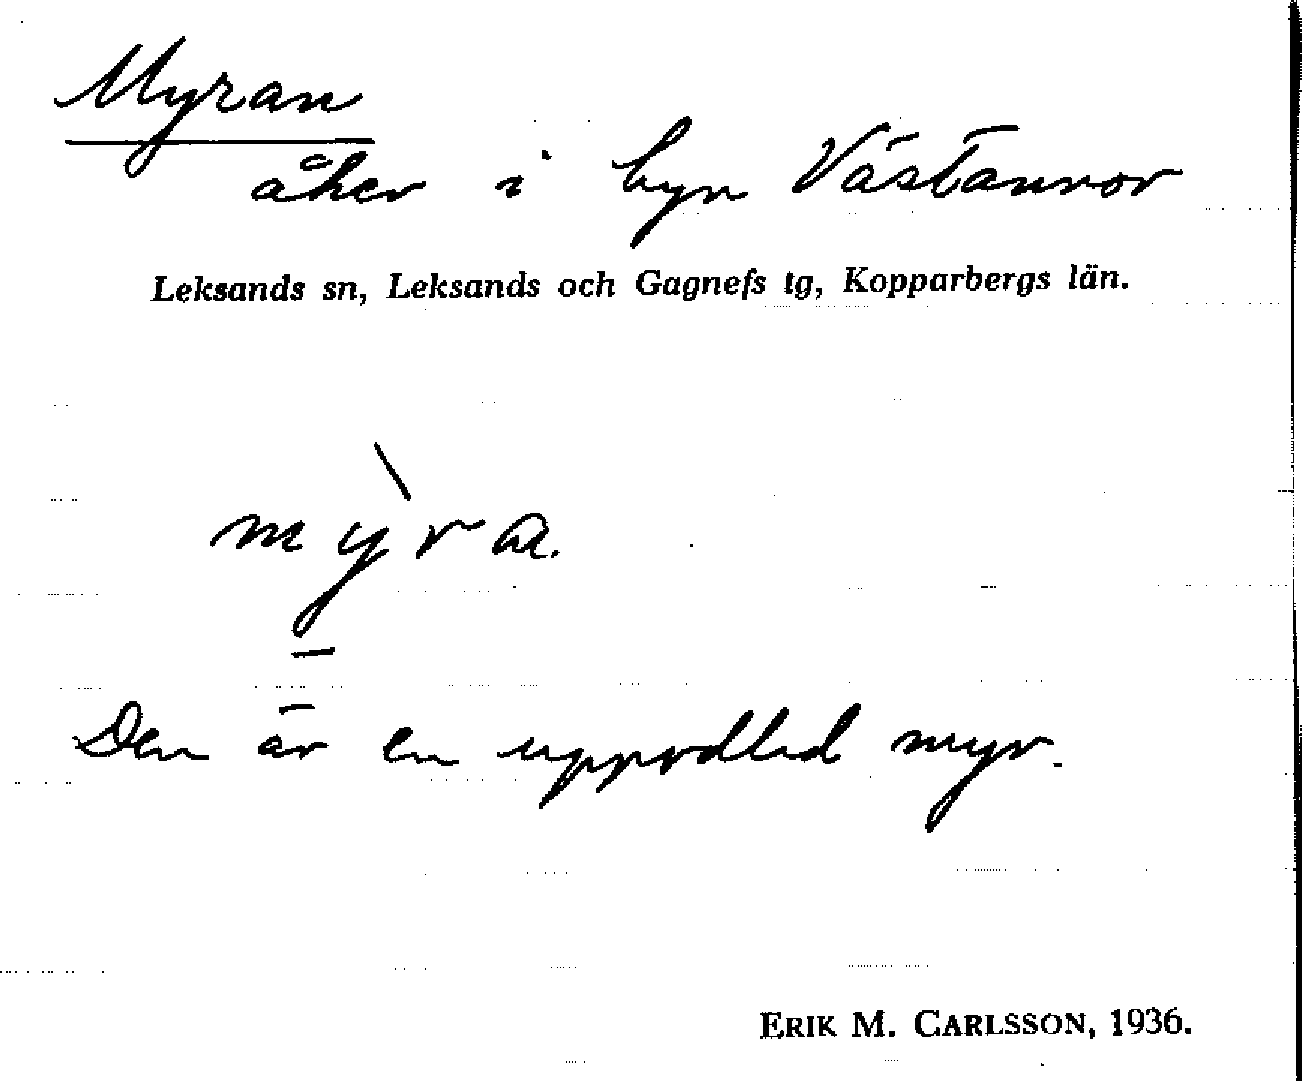 Myran
åker i byn Västannor
Leksands sn, Leksands och Gagnefs tg, Kopparbergs län.
mỳ̠ra.
Den är en uppodlad myr.
ERIK M. CARLSSON, 1936.